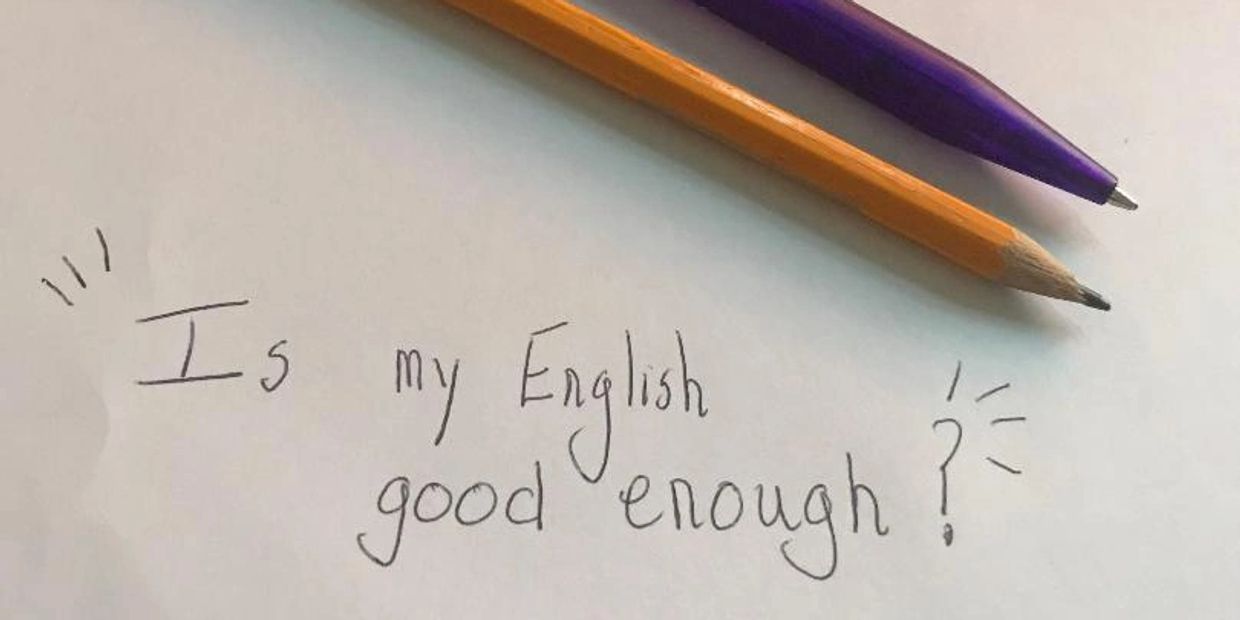 Is my English
good enough?